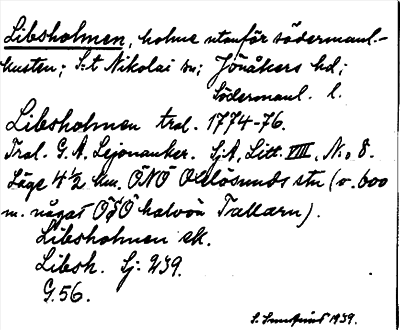 Libsholmen, holme utanför södermanl.-
kusten; S:t Nikolai sn; Jönåkers hd;
Södermanl. l.
Libsholmen trol. 1774-76.
Tral. G. A. Lejonanker. SjA, Litt. VIII, No 8.
Läge 4½ km. ÖNÖ Oxelösunds stn (o. 600
m. något ÖSÖ halvön Tallarn).
Libsholmen ek.
Libsh. Sj: 239.
G.56.
1939.